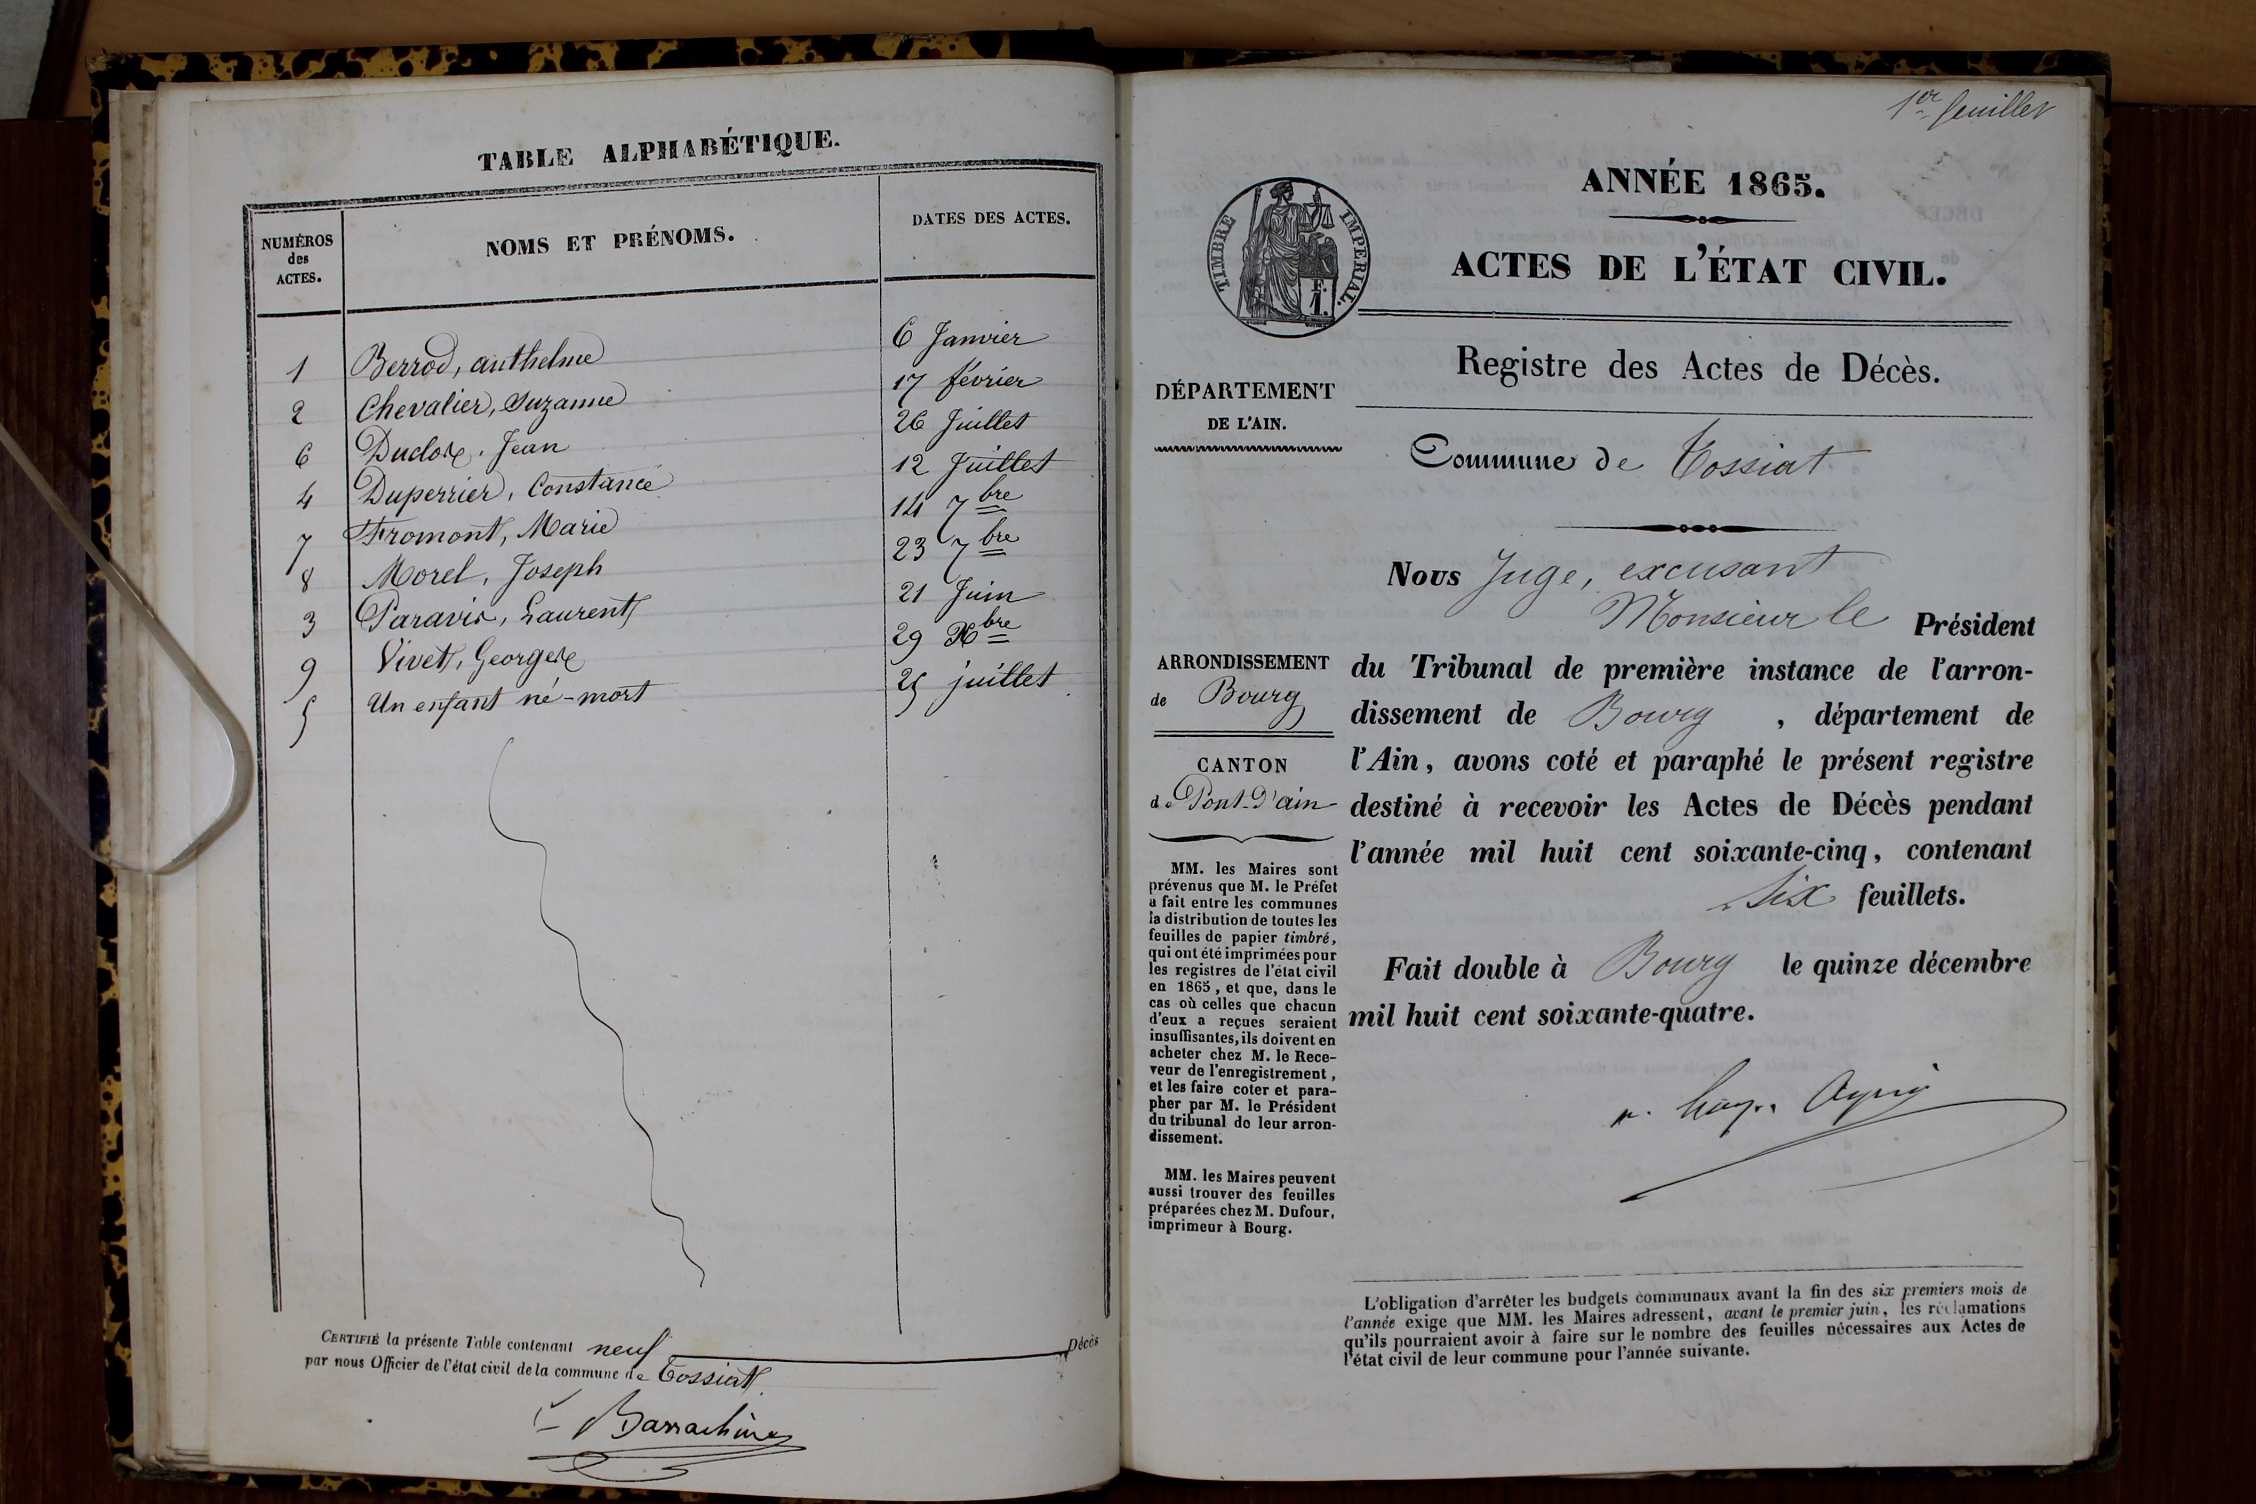 TABLE ALPHABÉTIQUE.
NUMÉROS des ACTES. NOMS ET PRÉNOMS. DATES DES ACTES.
1 Berrod, anthelme 6 Janvier
2 Chevalier, Suzanne 17 février
6 Duclos, Jean 26 Juillet
4 Duperrier, Constance 12 Juillet
7 Fromont, Marie 14 7bre
8 Morel, Joseph 23 7bre
3 Paravis, Laurent 21 Juin
9 Vivet, George 29 Xbre
5 Un enfant né-mort 25 juillet
CERTIFIÉ la présente Table contenant neuf Décès
par nous Officier de l'état civil de la commune de Tossiat
1er feuillet
ANNÉE 1865.
ACTES DE L'ÉTAT CIVIL.
TIMBRE IMPERIAL.
Registre des Actes de Décès.
DÉPARTEMENT
DE L'AIN.
Commune de Tossiat
Nous Juge, excusant
Monsieur le Président
du Tribunal de première instance de l'arron-
dissement de Bourg, département de
l'Ain, avons coté et paraphé le présent registre
destiné à recevoir les Actes de Décès pendant
l'année mil huit cent soixante-cinq, contenant
Six feuillets.
Fait double à Bourg le quinze décembre
mil huit cent soixante-quatre.
ARRONDISSEMENT
de Bourg
CANTON
de Pont-d'ain
MM. les Maires sont
prévenus que M. le Préfet
a fait entre les communes
la distribution de toutes les
feuilles de papier timbré,
qui ont été imprimées pour
les registres de l'état civil
en 1865, et que, dans le
cas où celles que chacun
d'eux a reçues seraient
insuffisantes, ils doivent en
acheter chez M. le Rece-
veur de l'enregistrement,
et les faire coter et para-
pher par M. le Président
du tribunal de leur arron-
dissement.
MM. les Maires peuvent
aussi trouver des feuilles
préparées chez M. Dufour,
imprimeur à Bourg.
L'obligation d'arrêter les budgets communaux avant la fin des six premiers mois de
l'année exige que MM. les Maires adressent, avant le premier juin, les réclamations
qu'ils pourraient avoir à faire sur le nombre des feuilles nécessaires aux Actes de
l'état civil de leur commune pour l'année suivante.